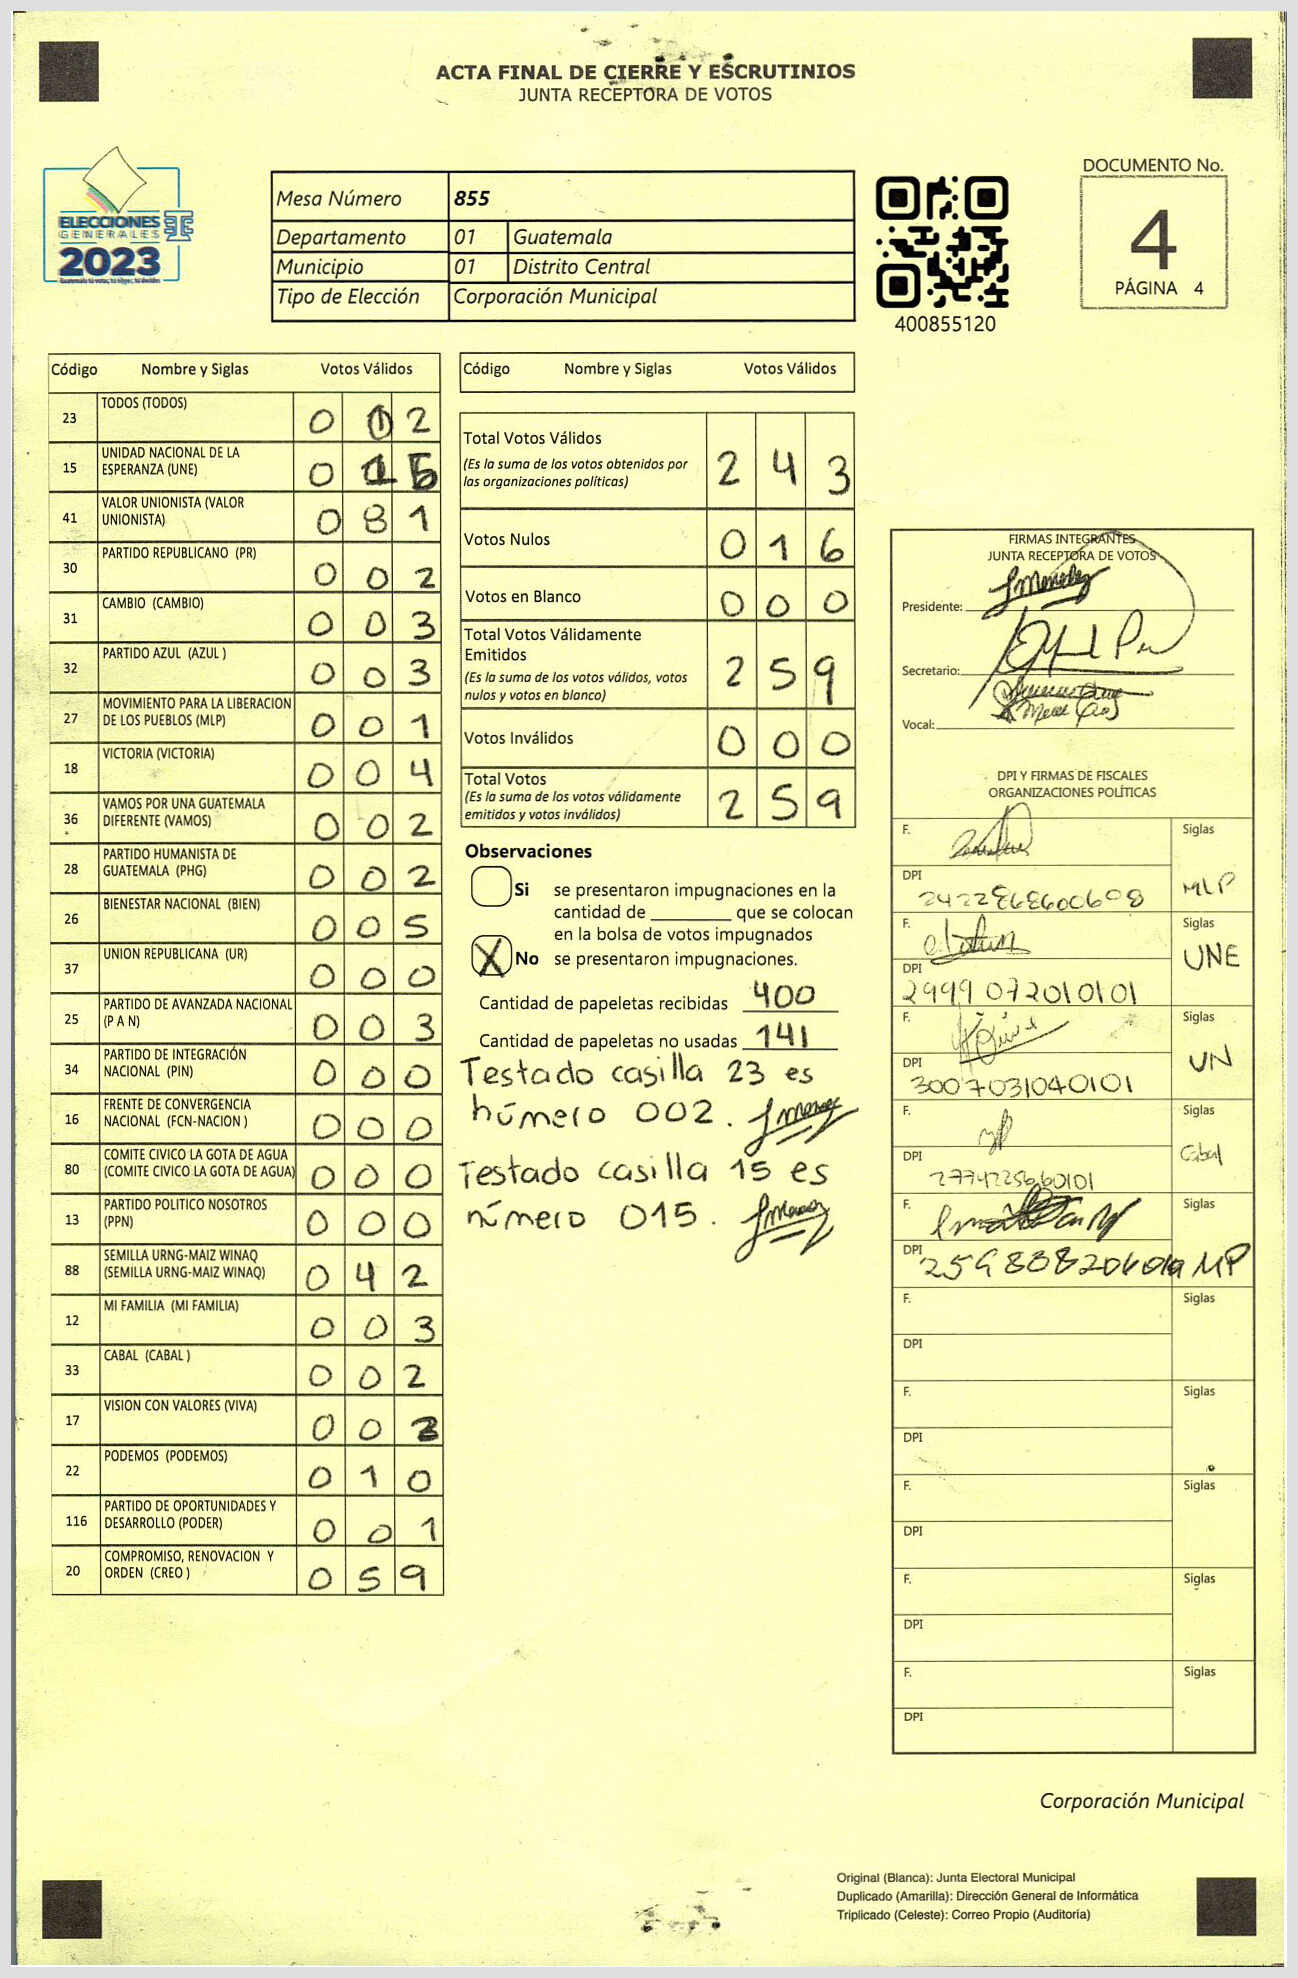 ACTA FINAL DE CIERRE Y ESCRUTINIOS
JUNTA RECEPTORA DE VOTOS
ELECCIONES
GENERALES
2023
Mesa Número 855
Departamento 01 Guatemala
Municipio 01 Distrito Central
Tipo de Elección Corporación Municipal
400855120
DOCUMENTO No.
4
PÁGINA 4
Código Nombre y Siglas Votos Válidos
23 TODOS (TODOS) 0 0 2
15 UNIDAD NACIONAL DE LA ESPERANZA (UNE) 0 1 5
41 VALOR UNIONISTA (VALOR UNIONISTA) 0 8 1
30 PARTIDO REPUBLICANO (PR) 0 0 2
31 CAMBIO (CAMBIO) 0 0 3
32 PARTIDO AZUL (AZUL ) 0 0 3
27 MOVIMIENTO PARA LA LIBERACION DE LOS PUEBLOS (MLP) 0 0 1
18 VICTORIA (VICTORIA) 0 0 4
36 VAMOS POR UNA GUATEMALA DIFERENTE (VAMOS) 0 0 2
28 PARTIDO HUMANISTA DE GUATEMALA (PHG) 0 0 2
26 BIENESTAR NACIONAL (BIEN) 0 0 5
37 UNION REPUBLICANA (UR) 0 0 0
25 PARTIDO DE AVANZADA NACIONAL (P A N) 0 0 3
34 PARTIDO DE INTEGRACIÓN NACIONAL (PIN) 0 0 0
16 FRENTE DE CONVERGENCIA NACIONAL (FCN-NACION ) 0 0 0
80 COMITE CIVICO LA GOTA DE AGUA (COMITE CIVICO LA GOTA DE AGUA) 0 0 0
13 PARTIDO POLITICO NOSOTROS (PPN) 0 0 0
88 SEMILLA URNG-MAIZ WINAQ (SEMILLA URNG-MAIZ WINAQ) 0 4 2
12 MI FAMILIA (MI FAMILIA) 0 0 3
33 CABAL (CABAL ) 0 0 2
17 VISION CON VALORES (VIVA) 0 0
22 PODEMOS (PODEMOS) 0 1 0
116 PARTIDO DE OPORTUNIDADES Y DESARROLLO (PODER) 0 0 1
20 COMPROMISO, RENOVACION Y ORDEN (CREO ) 0 5 9
Código Nombre y Siglas Votos Válidos
Total Votos Válidos 2 4 3
(Es la suma de los votos obtenidos por
las organizaciones políticas)
Votos Nulos 0 1 6
Votos en Blanco 0 0 0
Total Votos Válidamente
Emitidos 2 5 9
(Es la suma de los votos válidos, votos
nulos y votos en blanco)
Votos Inválidos 0 0 0
Total Votos 2 5 9
(Es la suma de los votos válidamente
emitidos y votos inválidos)
Observaciones
Si se presentaron impugnaciones en la
cantidad de ________ que se colocan
en la bolsa de votos impugnados
X No se presentaron impugnaciones.
Cantidad de papeletas recibidas 400
Cantidad de papeletas no usadas 141
Testado casilla 23 es
número 002.
Testado casilla 15 es
número 015.
FIRMAS INTEGRANTES
JUNTA RECEPTORA DE VOTOS
Presidente:
Secretario:
Vocal:
DPI Y FIRMAS DE FISCALES
ORGANIZACIONES POLÍTICAS
F. Siglas
DPI MLP
F. Siglas
DPI 2999 072010101 UNE
F. Siglas
DPI 300703104 0101 UN
F. Siglas
DPI Cabal
F. Siglas
DPI MP
F. Siglas
DPI
F. Siglas
DPI
F. Siglas
DPI
F. Siglas
DPI
F. Siglas
DPI
Corporación Municipal
Original (Blanca): Junta Electoral Municipal
Duplicado (Amarilla): Dirección General de Informática
Triplicado (Celeste): Correo Propio (Auditoría)